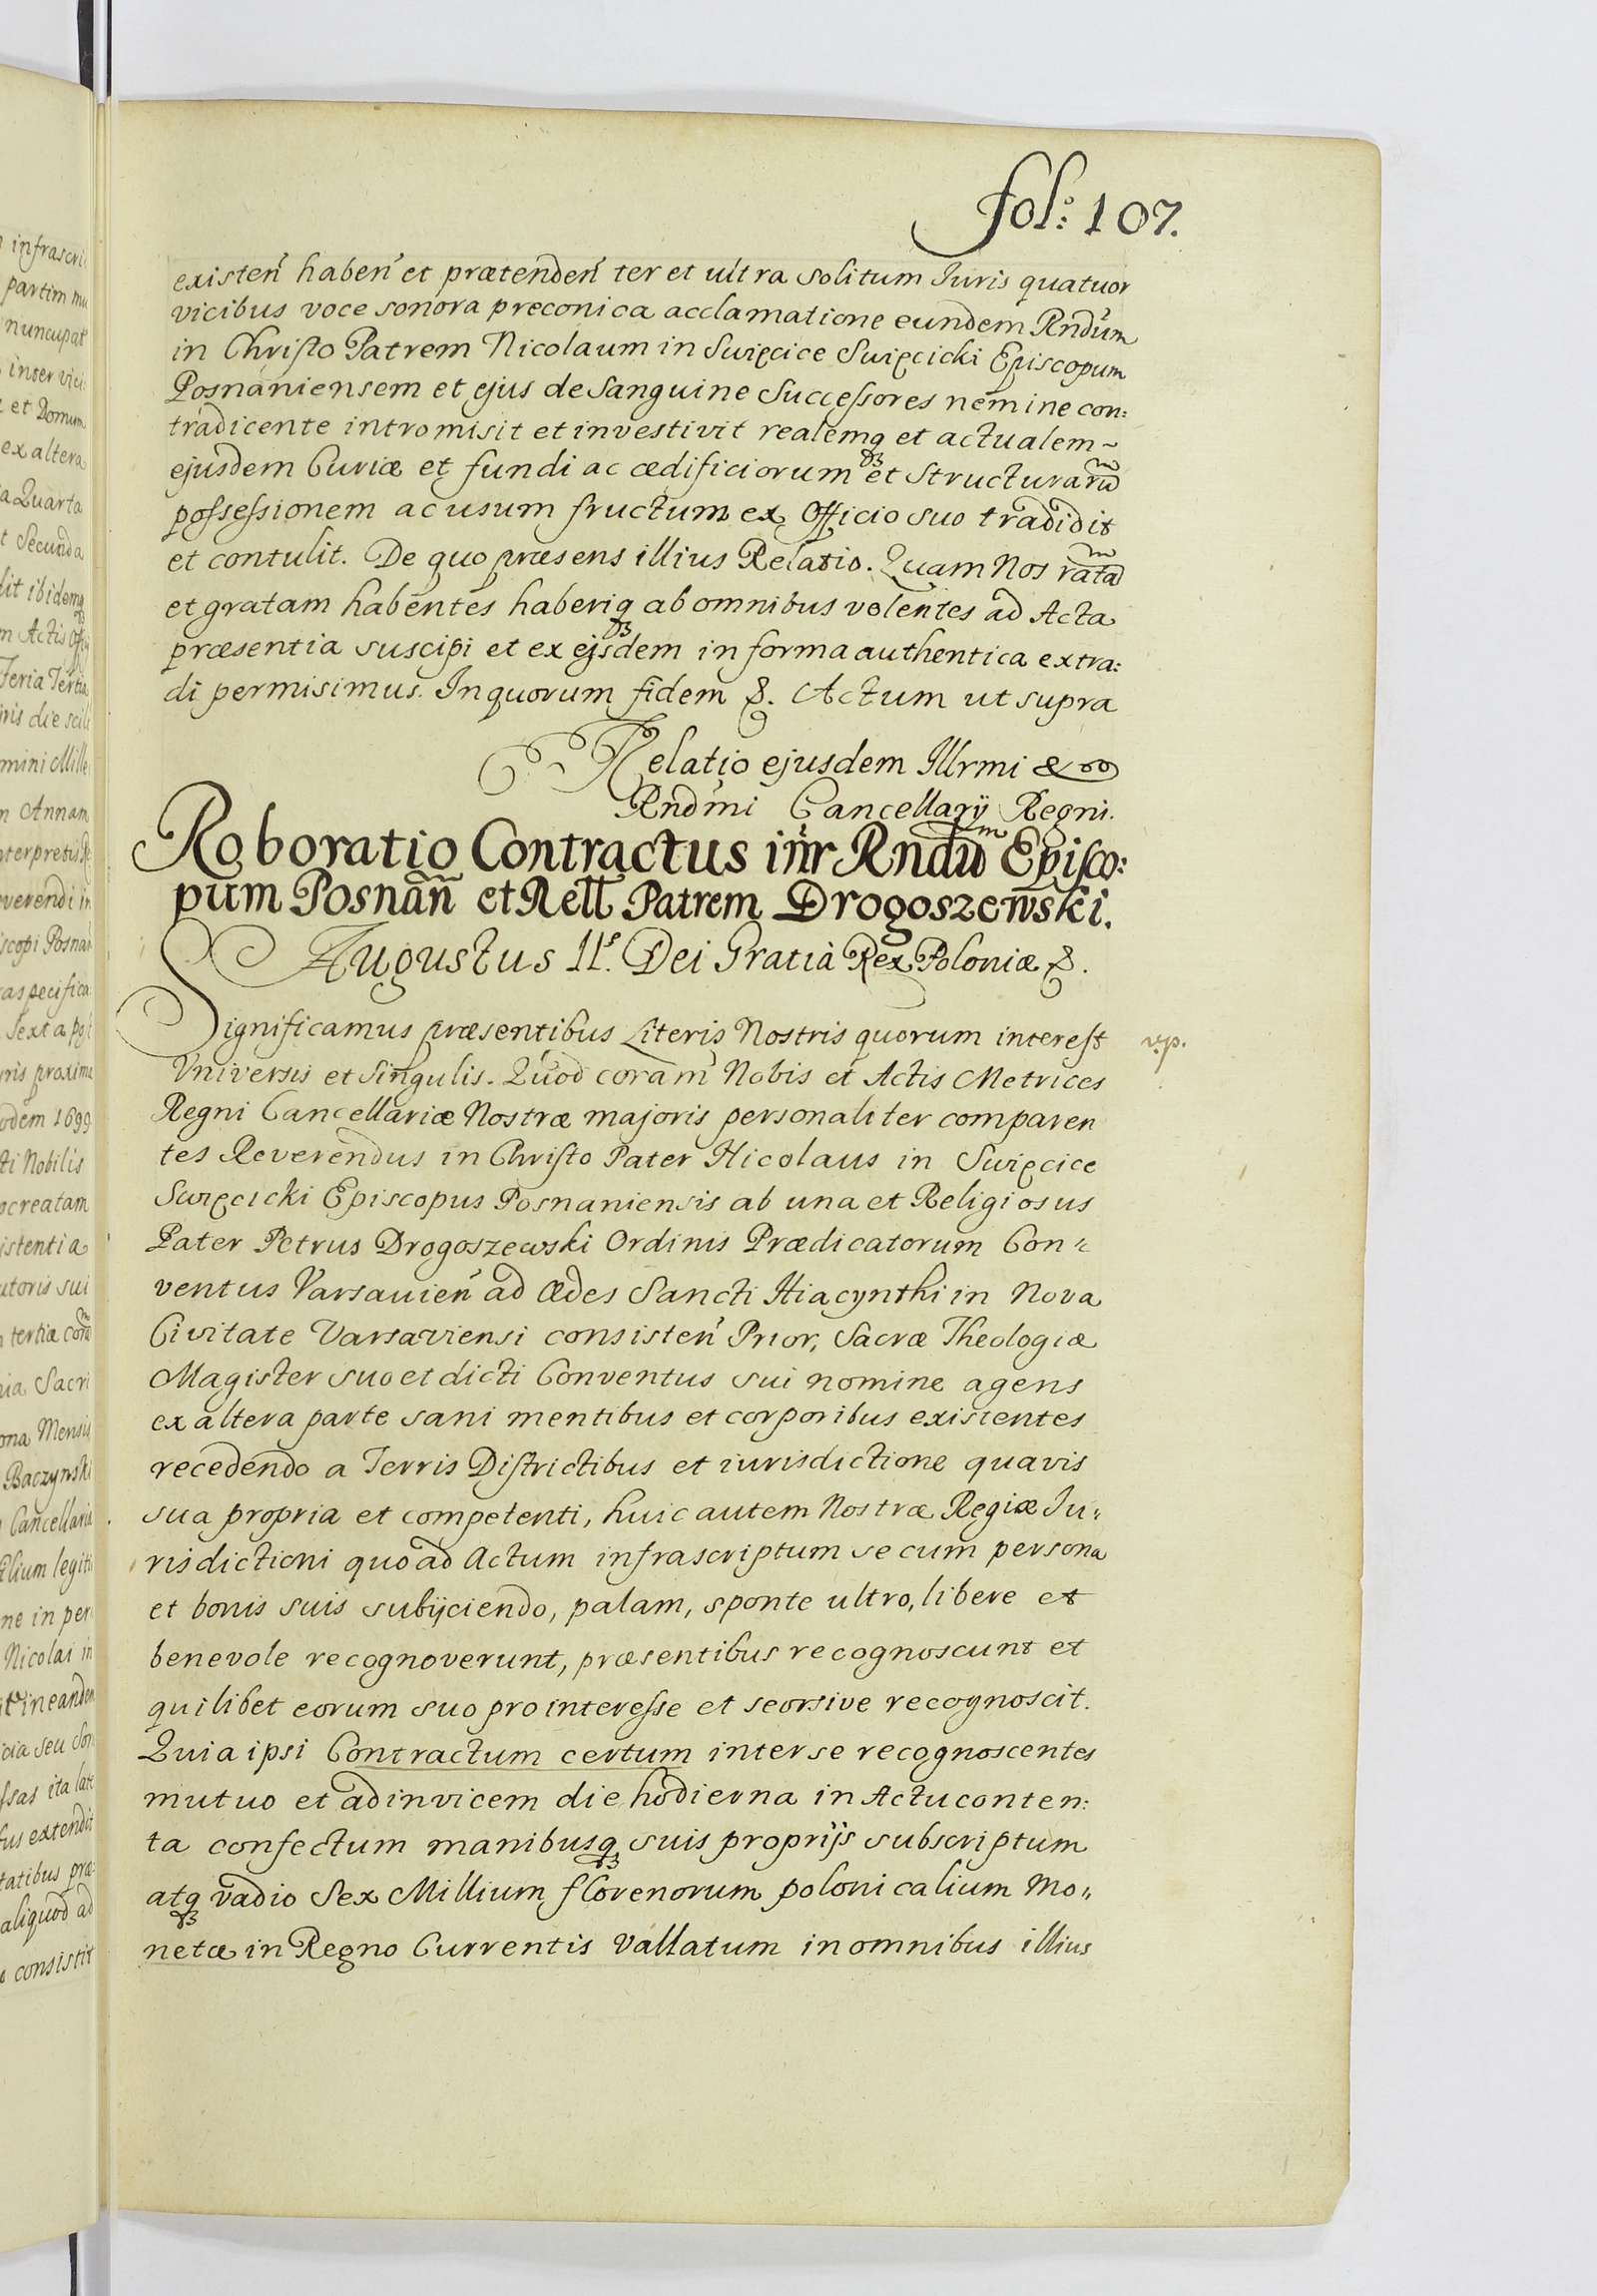 fol: 107.
existeń habeń et prætendeń ter et ultra solitum Iuris quatuor
vicibus voce sonora preconica acclamatione eundem Rndum
in Christo Patrem Nicolaum in Swięcice Swięcicki Episcopum
Posnaniensem et ejus de Sanguine Successores nemine con:
tradicente intromisit et investivit realemq3 et actualem~
ejusdem Curiæ et fundi ac ædificiorum et Structurarum
possessionem ac usum fructum ex Officio suo tradidit
et contulit. De quo præsens illius Relatio. Quam Nos ratam
et gratam habentes haberiq3 ab omnibus volentes ad Acta
præsentia suscipi et ex ejsdem in forma authentica extra:
di permisimus. In quorum fidem &. Actum ut supra
Relatio ejusdem Illrmi &
Rndmi Cancellarÿ Regni.
Roboratio Contractus inr Rndum Episco:
pum Posnañ et Rell Patrem Drogoszewski.
Augustus IIs. Dei Gratià Rex Poloniæ &.
Significamus præsentibus Literis Nostris quorum interest
Universis et Singulis. Quod coram Nobis et Actis Metrices
Regni Cancellariæ Nostræ majoris personaliter comparen
tes Reverendus in Christo Pater Nicolaus in Swięcice
Swięcicki Episcopus Posnaniensis ab una et Religiosus
Pater Petrus Drogoszewski Ordinis Prædicatorum Con=
ventus Varsavień ad Ædes Sancti Hiacynthi in Nova
Civitate Varsaviensi consisteń Prior, Sacræ Theologiæ
Magister suo et dicti Conventus sui nomine agens
ex altera parte sani mentibus et corporibus existentes
recedendo a Terris Districtibus et iurisdictione quavis
sua propria et competenti, huic autem Nostræ Regiæ Iu„
risdictioni quo ad Actum infrascriptum se cum persona
et bonis suis subÿciendo, palam, sponte ultro, libere et
benevole recognoverunt, præsentibus recognoscunt et
quilibet eorum suo pro interesse et seorsive recognoscit.
Quia ipsi Contractum certum inter se recognoscentes
mutuo et adinvicem die hodierna in Actu conten:
ta confectum manibusq3 suis proprÿs subscriptum
atq3 vadio Sex Millium florenorum polonicalium Mo„
netæ in Regno Currentis Vallatum in omnibus illius